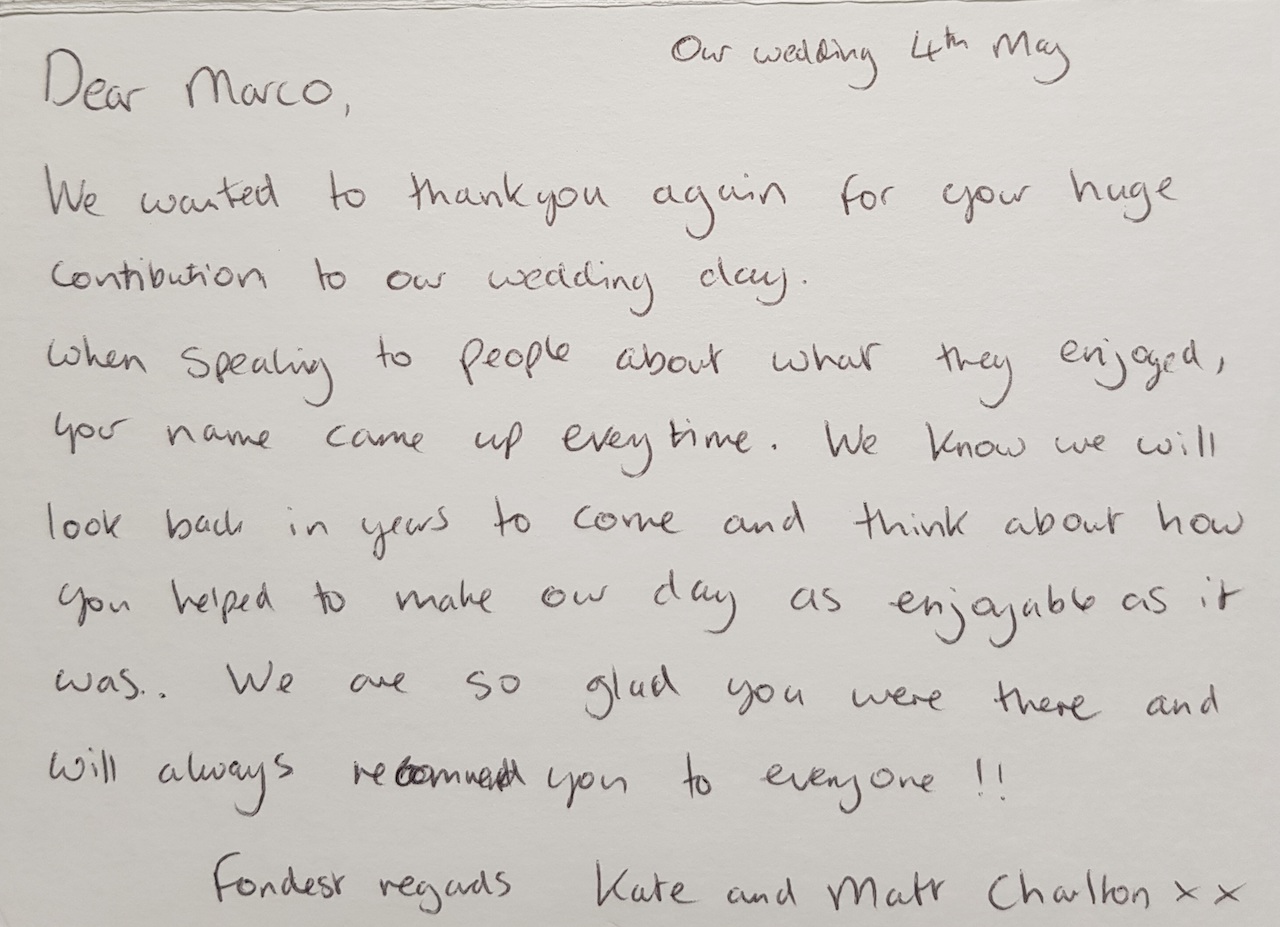 Our wedding 4th May
Dear Marco,
We wanted to thankyou again for your huge
contibution to our wedding day.
When speaking to people about what they enjoyed,
your name came up everytime. We know we will
look back in years to come and think about how
you helped to make our day as enjoyable as it
was.. We are so glad you were there and
will always recommend you to everyone !!
Fondest regards Kate and Matt Charlton x x